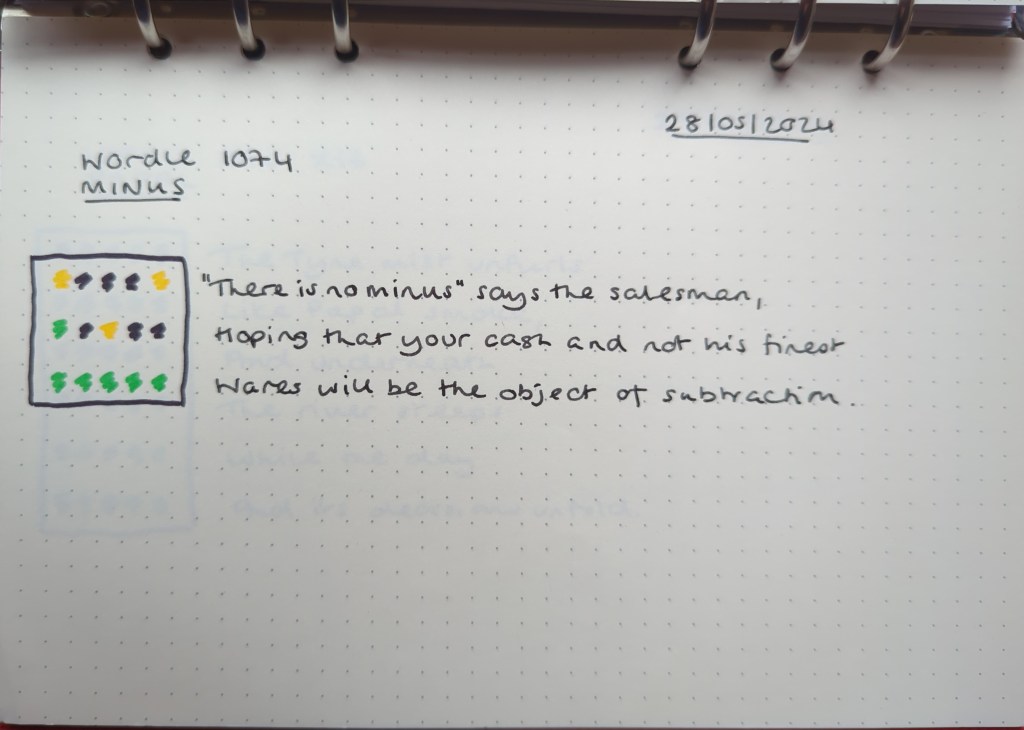 28/05/2024
Wordle 1074
MINUS
"There is no minus" says the salesman,
Hoping that your cash and not his finest
Wares will be the object of subtraction.